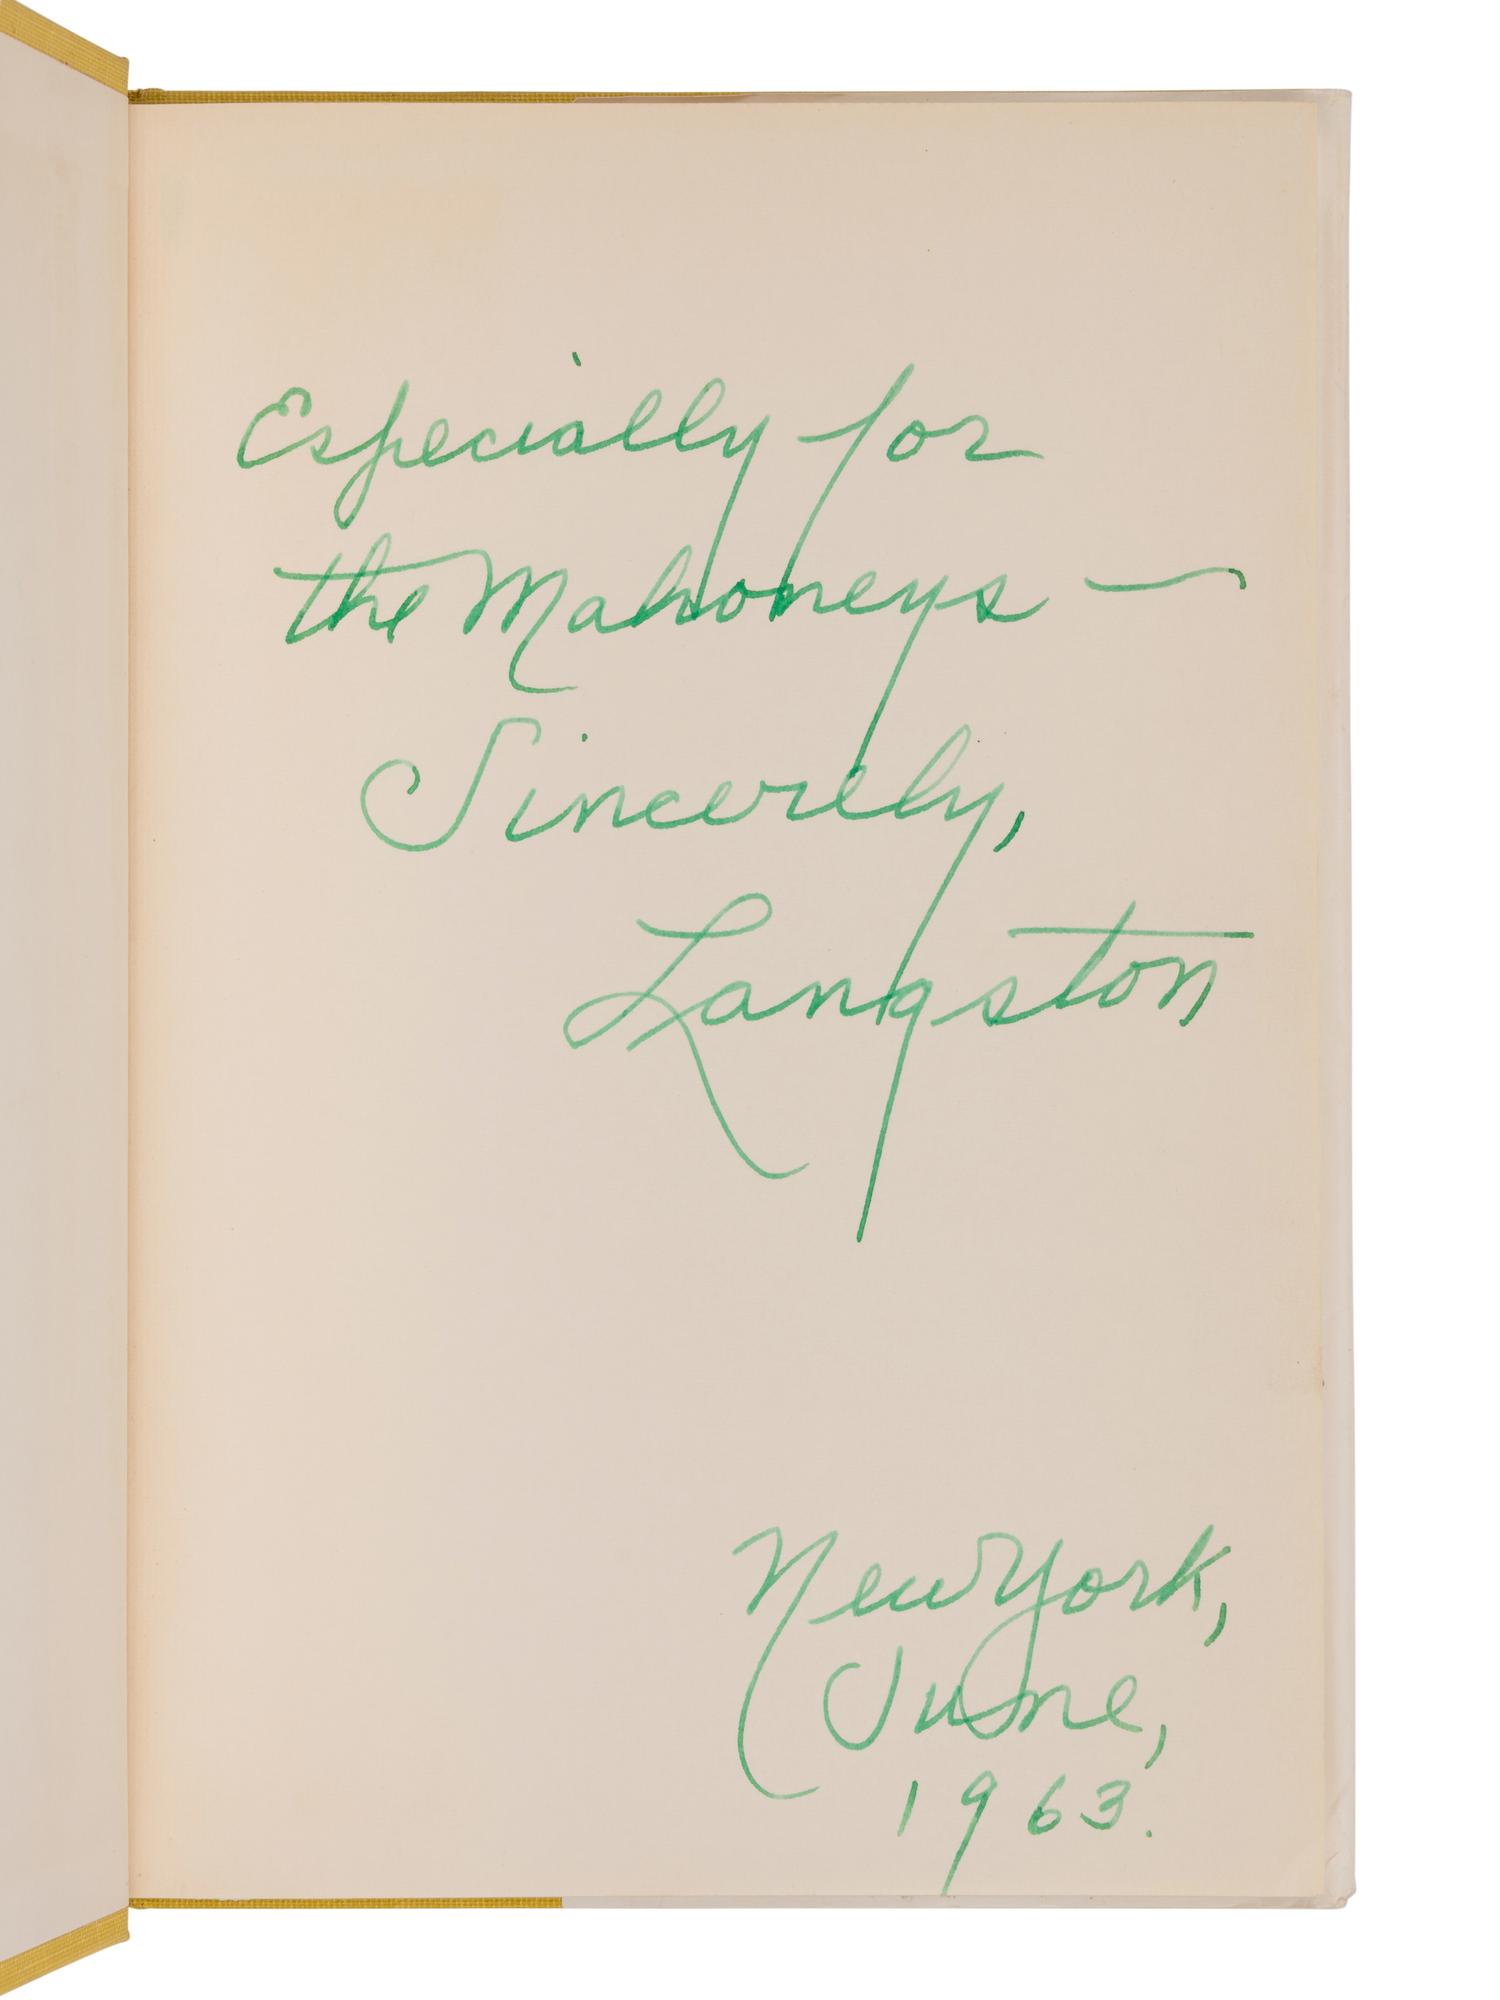 Especially for
the Mahoneys —
Sincerely,
Langston
New York,
June,
1963.